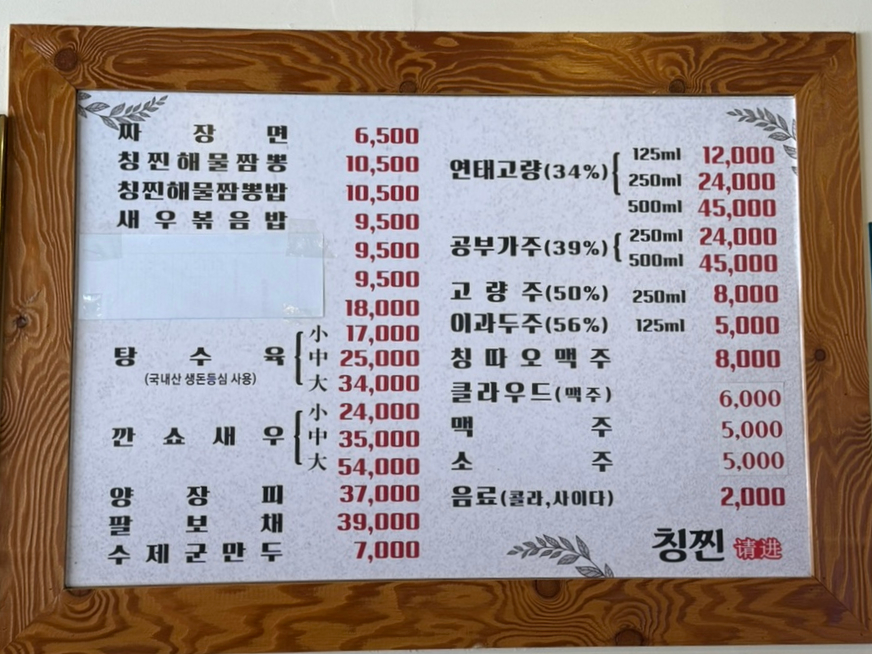 짜 장 면 6,500
칭찐해물짬뽕 10,500
칭찐해물짬뽕밥 10,500
새우볶음밥 9,500
9,500
9,500
18,000
탕 수 육 小 17,000
中 25,000
(국내산 생돈등심 사용) 大 34,000
깐쇼새우 小 24,000
中 35,000
大 54,000
양 장 피 37,000
팔 보 채 39,000
수제군만두 7,000
연태고량(34%) 125ml 12,000
250ml 24,000
500ml 45,000
공부가주(39%) 250ml 24,000
500ml 45,000
고 량 주(50%) 250ml 8,000
이과두주(56%) 125ml 5,000
칭따오맥주 8,000
클라우드(맥주) 6,000
맥 주 5,000
소 주 5,000
음료(콜라,사이다) 2,000
칭찐 请进